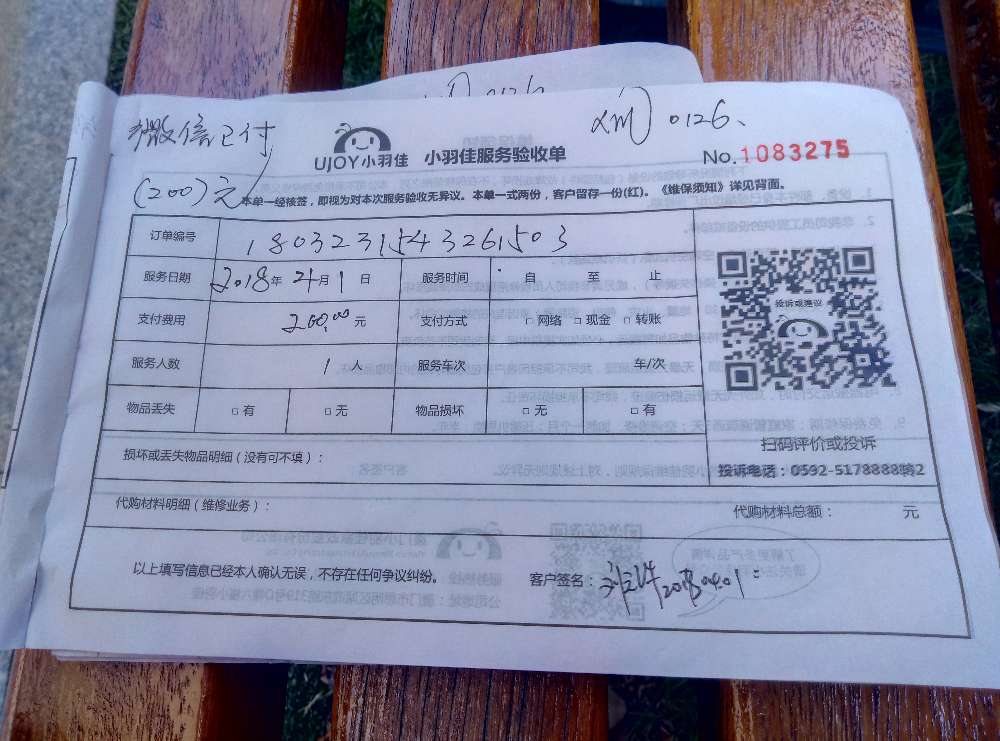 微信已付
(200)元
XM 0126、
UJOY小羽佳 小羽佳服务验收单
No.1083275
本单一经核签，即视为对本次服务验收无异议。本单一式两份，客户留存一份(红)。《维保须知》详见背面。
订单编号 1803231543261503
服务日期 2018年4月1日 服务时间 自 至 止
支付费用 200.00元 支付方式 □网络 □现金 □转账
服务人数 1人 服务车次 车/次
物品丢失 □有 □无 物品损坏 □无 □有
投诉或建议
扫码评价或投诉
投诉电话：0592-5178888转2
损坏或丢失物品明细（没有可不填）：
代购材料明细（维修业务）：
代购材料总额： 元
以上填写信息已经本人确认无误，不存在任何争议纠纷。
客户签名： 20180401